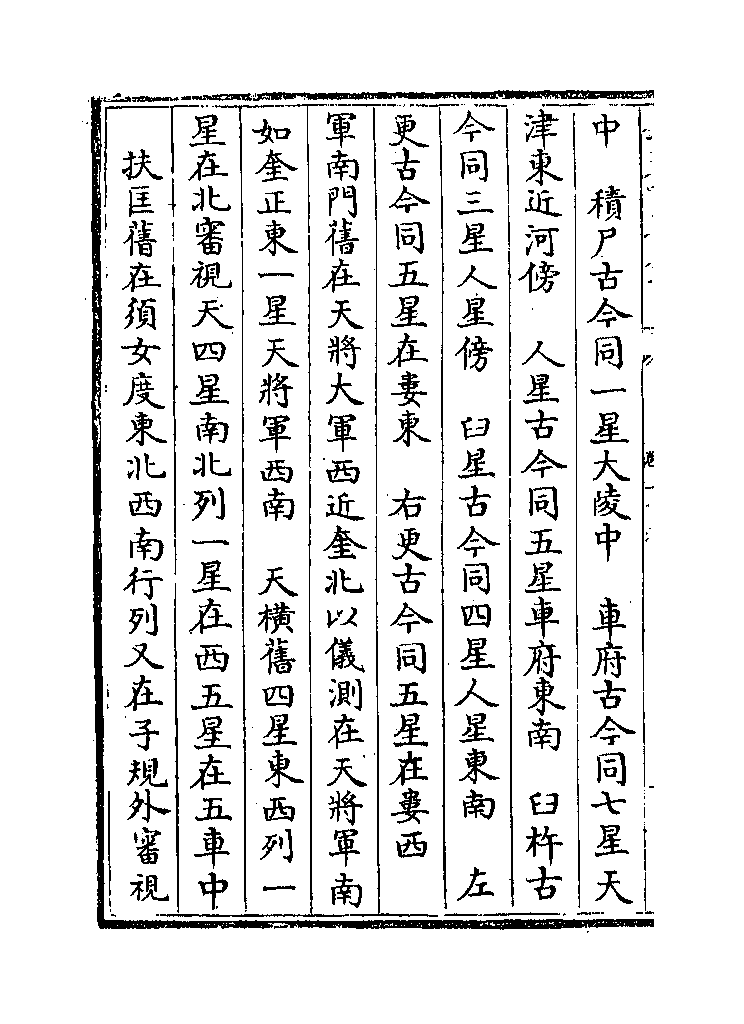 中　積尸古今同一星大陵中　車府古今同七星天
津東近河傍　人星古今同五星車府東南　臼杵古
今同三星人星傍　臼星古今同四星人星東南　左
更古今同五星在婁東　右更古今同五星在婁西
軍南門舊在天將大軍西近奎北以儀測在天將軍南
如奎正東一星天將軍西南　天橫舊四星東西列一
星在北審視天四星南北列一星在西五星在五車中
扶匡舊在須女度東北西南行列又在子規外審視